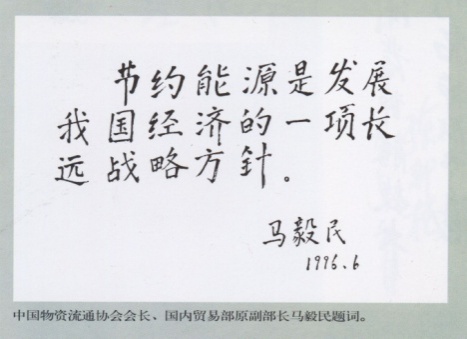 节约能源是发展
我国经济的一项长
远战略方針。
马毅民
1996.6
中国物资流通协会会长、国内贸易部原副部长马毅民题词。